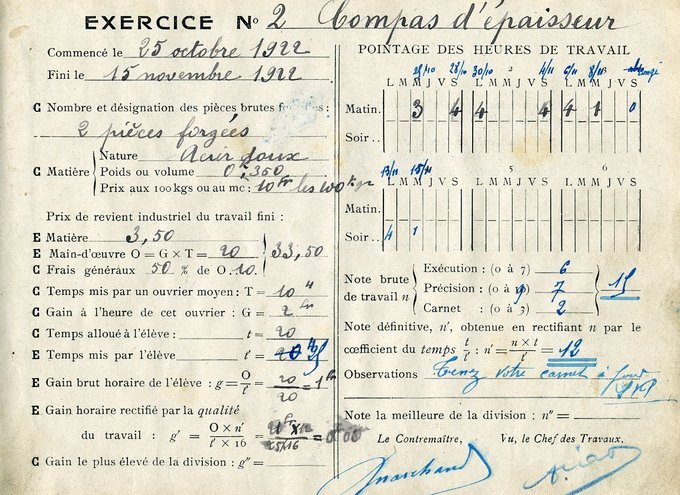 EXERCICE No 2 Compas d'épaisseur
Commencé le 25 octobre 1922
Fini le 15 novembre 1922
C Nombre et désignation des pièces brutes
2 pièces forgées
C Matière
Nature Acier doux
Poids ou volume 0k,350
Prix aux 100 kgs ou au mc: 10fr les 100 kgr
Prix de revient industriel du travail fini :
E Matière 3,50
E Main-d'œuvre O = G × T = 20
33,50
C Frais généraux 50 % de O. 10.
C Temps mis par un ouvrier moyen : T = 10 H
C Gain à l'heure de cet ouvrier : G = 2 fr
C Temps alloué à l'élève : t = 20
E Temps mis par l'élève t' =
E Gain brut horaire de l'élève : g = O/t' = 20/20 = 1 fr
E Gain horaire rectifié par la qualité
du travail : g' = O × n'/t' × 16 =
C Gain le plus élevé de la division : g" =
POINTAGE DES HEURES DE TRAVAIL
28/10 30/10 2 4/11 6/11
L M M J V S L M M J V S L M M J V S
Matin. 3 4 4 4 4 1 0
Soir..
13/11 15/11 5 6
L M M J V S L M M J V S L M M J V S
Matin.
Soir.. 4 1
Note brute de travail n
Exécution : (0 à 7) 6
Précision : (0 à 9) 7
Carnet : (0 à 3) 2
15
Note définitive, n', obtenue en rectifiant n par le
coefficient du temps t/t' : n' = n × t/t' = 12
Observations Tenez votre carnet à jour
Note la meilleure de la division : n" =
Le Contremaître, Vu, le Chef des Travaux,
Marchand